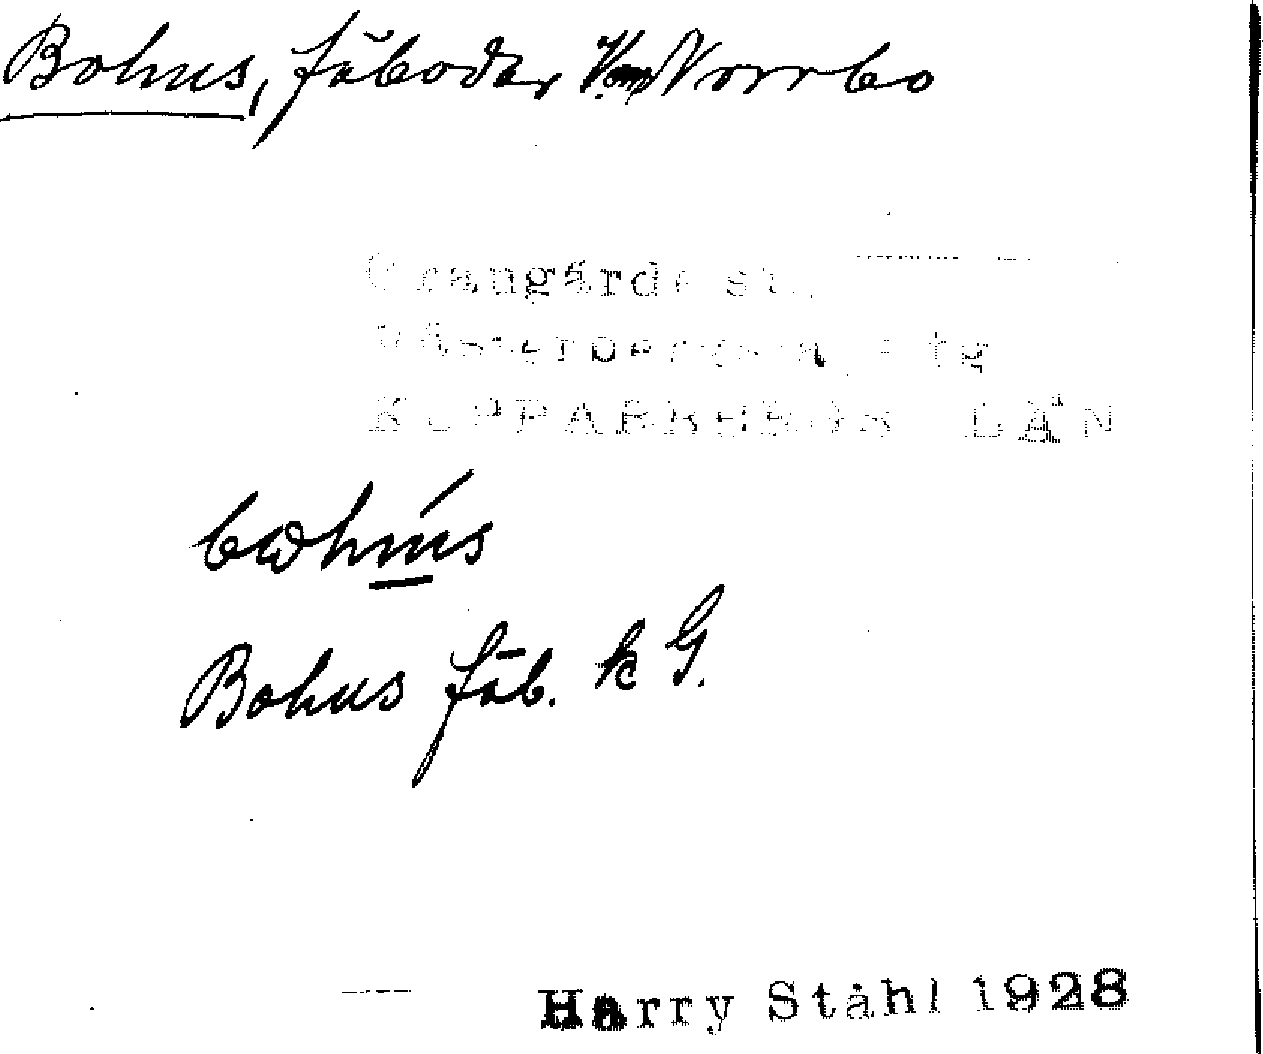 Bohus, fäbodar Norrbo
Grangärde sn.
Västerbergsla ftg
KOPPARBERGS LÄN
Bohus fäb. k G.
Harry Ståhl 1928